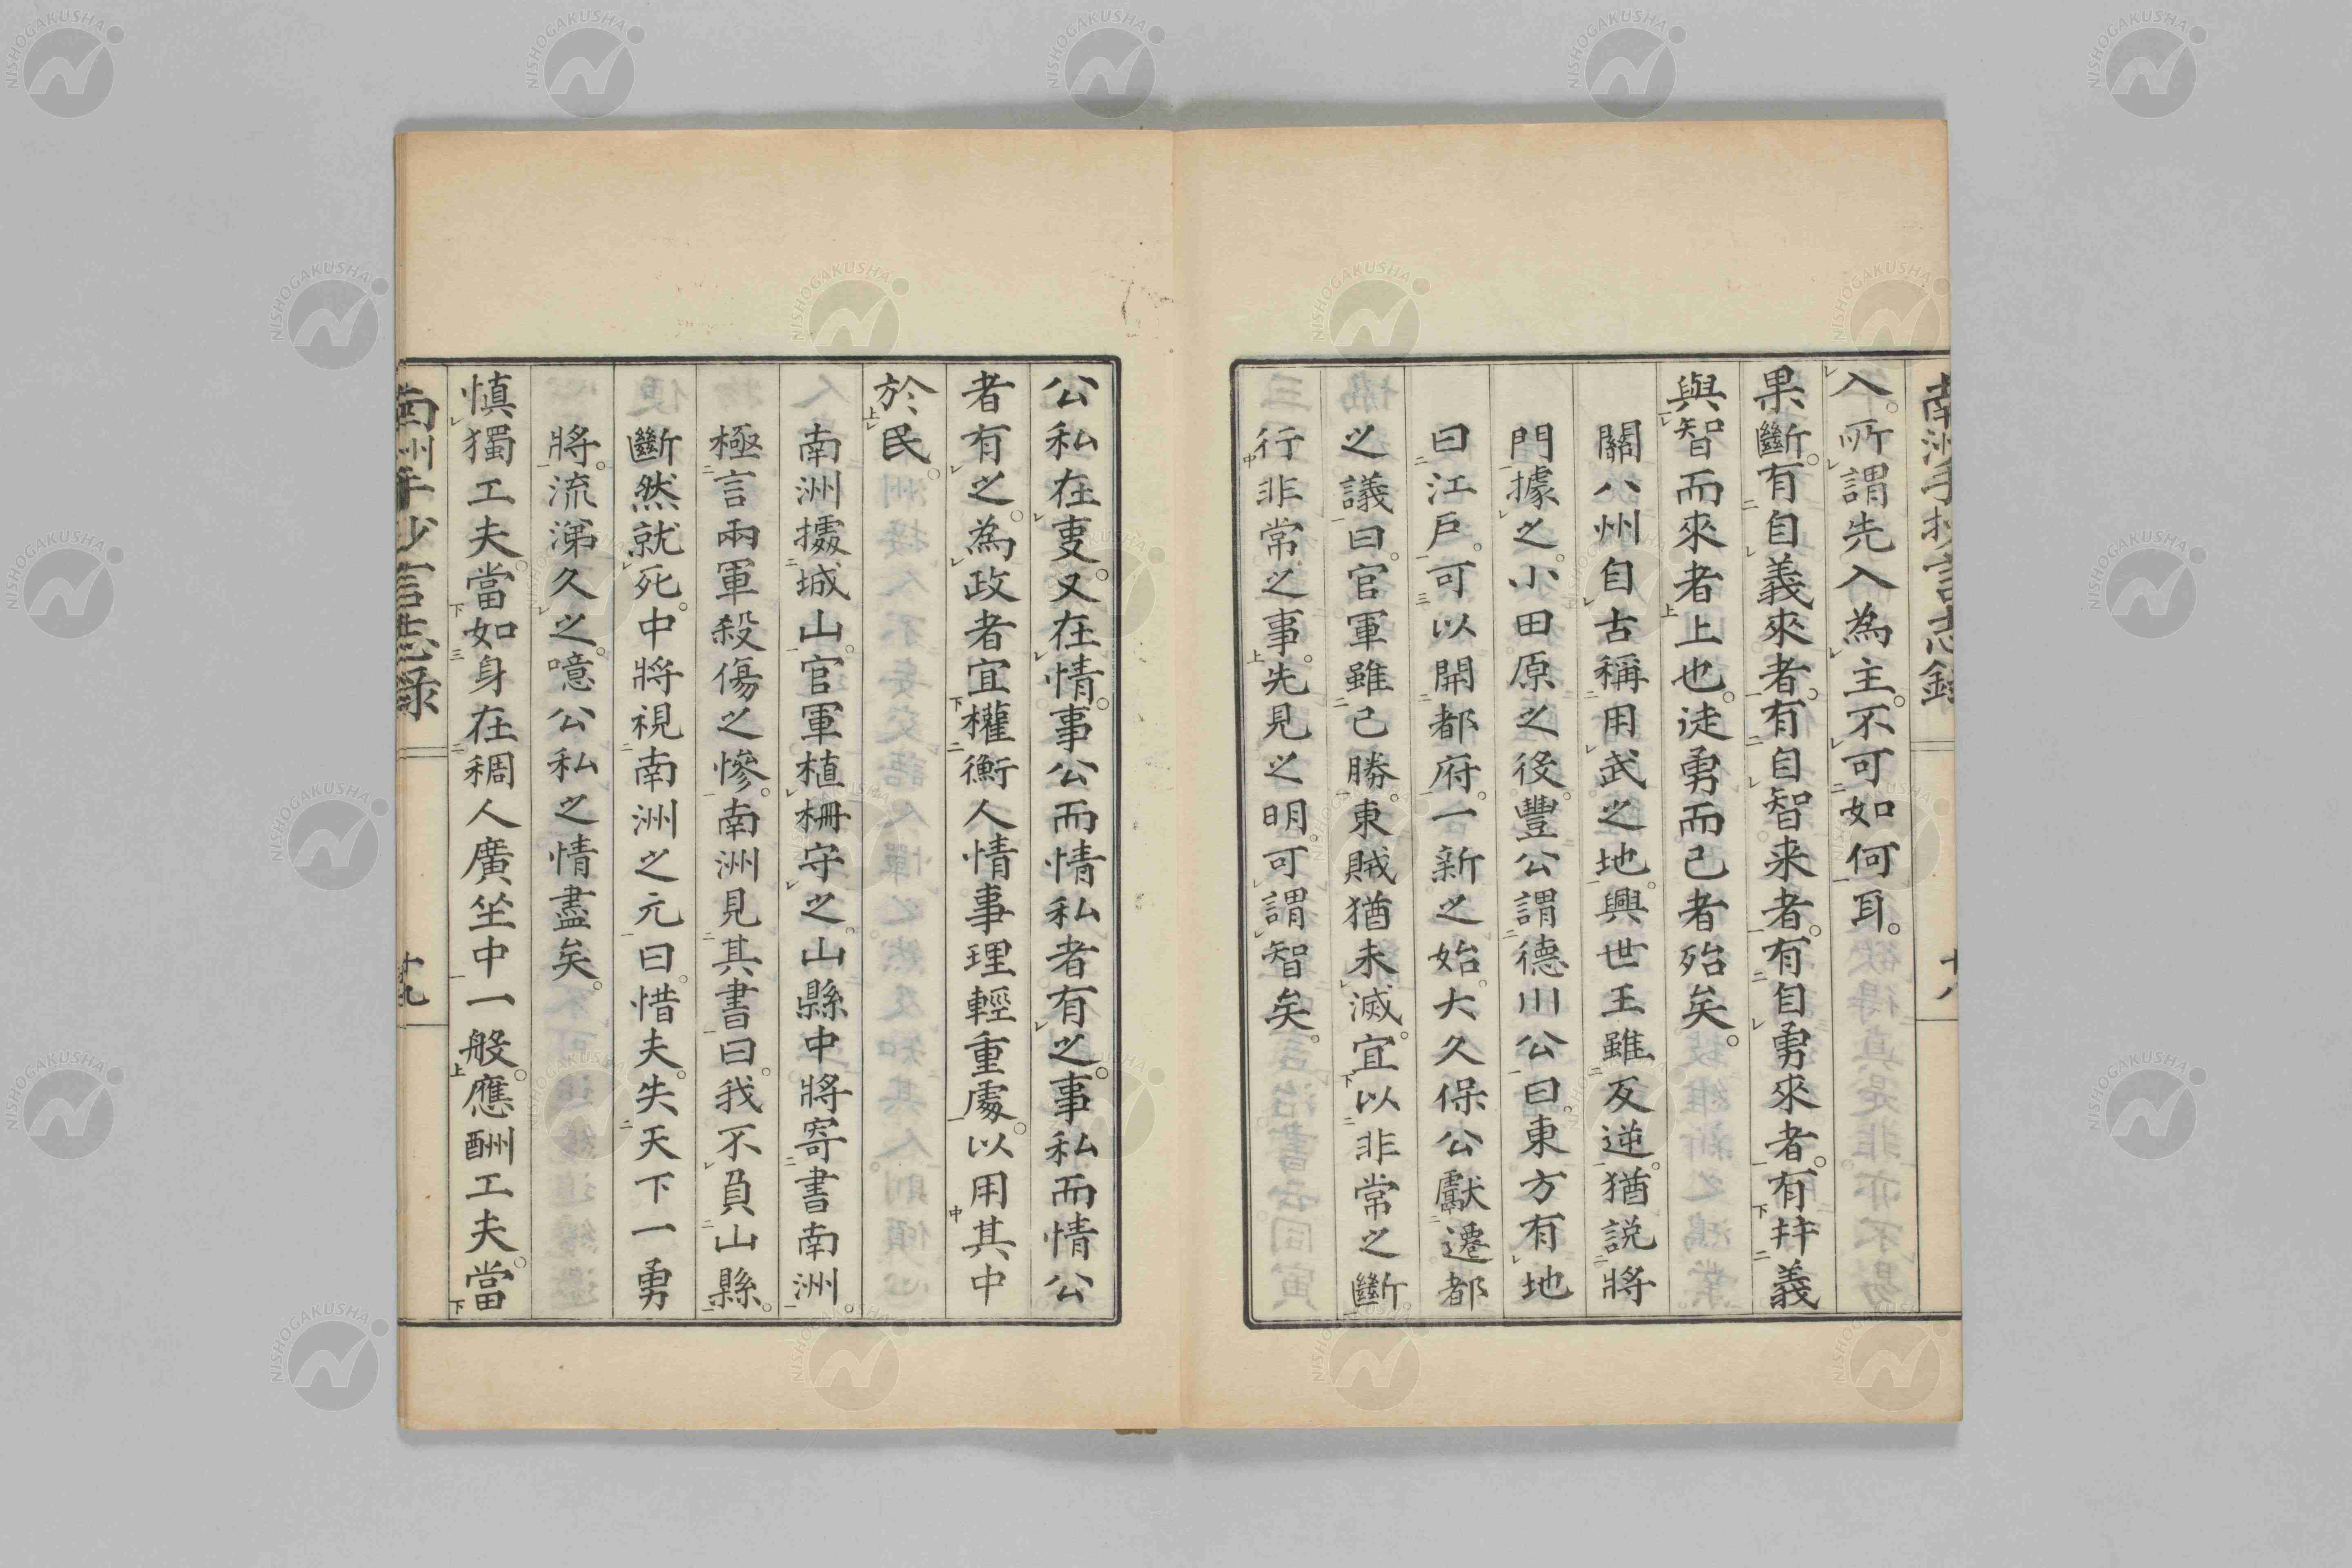 南洲手抄言志錄
十八
入。所謂先入為主。不可如何耳。
果斷。有自義來者。有自智来者。有自勇來者。有幷義
與智而來者上也。徒勇而已者殆矣。
關八州自古稱用武之地。興世王雖反逆。猶説將
門據之。小田原之役。豐公謂德川公曰。東方有地
曰江戸。可以開都府。一新之始。大久保公獻遷都
之議曰。官軍雖已勝。東賊猶未滅。宜以非常之斷
行非常之事。先見之明。可謂智矣。
公私在事。又在情。事公而情私者有之。事私而情公
者有之。為政者宜權衡人情事理輕重處。以用其中
於民。
南洲據城山。官軍植柵守之。山縣中將寄書南洲。
極言兩軍殺傷之慘。南洲見其書曰。我不負山縣。
斷然就死。中將視南洲之元曰。惜夫。失天下一勇
將。流涕久之。噫公私之情盡矣。
慎獨工夫。當如身在稠人廣坐中一般。應酬工夫。當
南洲手抄言志錄
十九
NISHOGAKUSHA